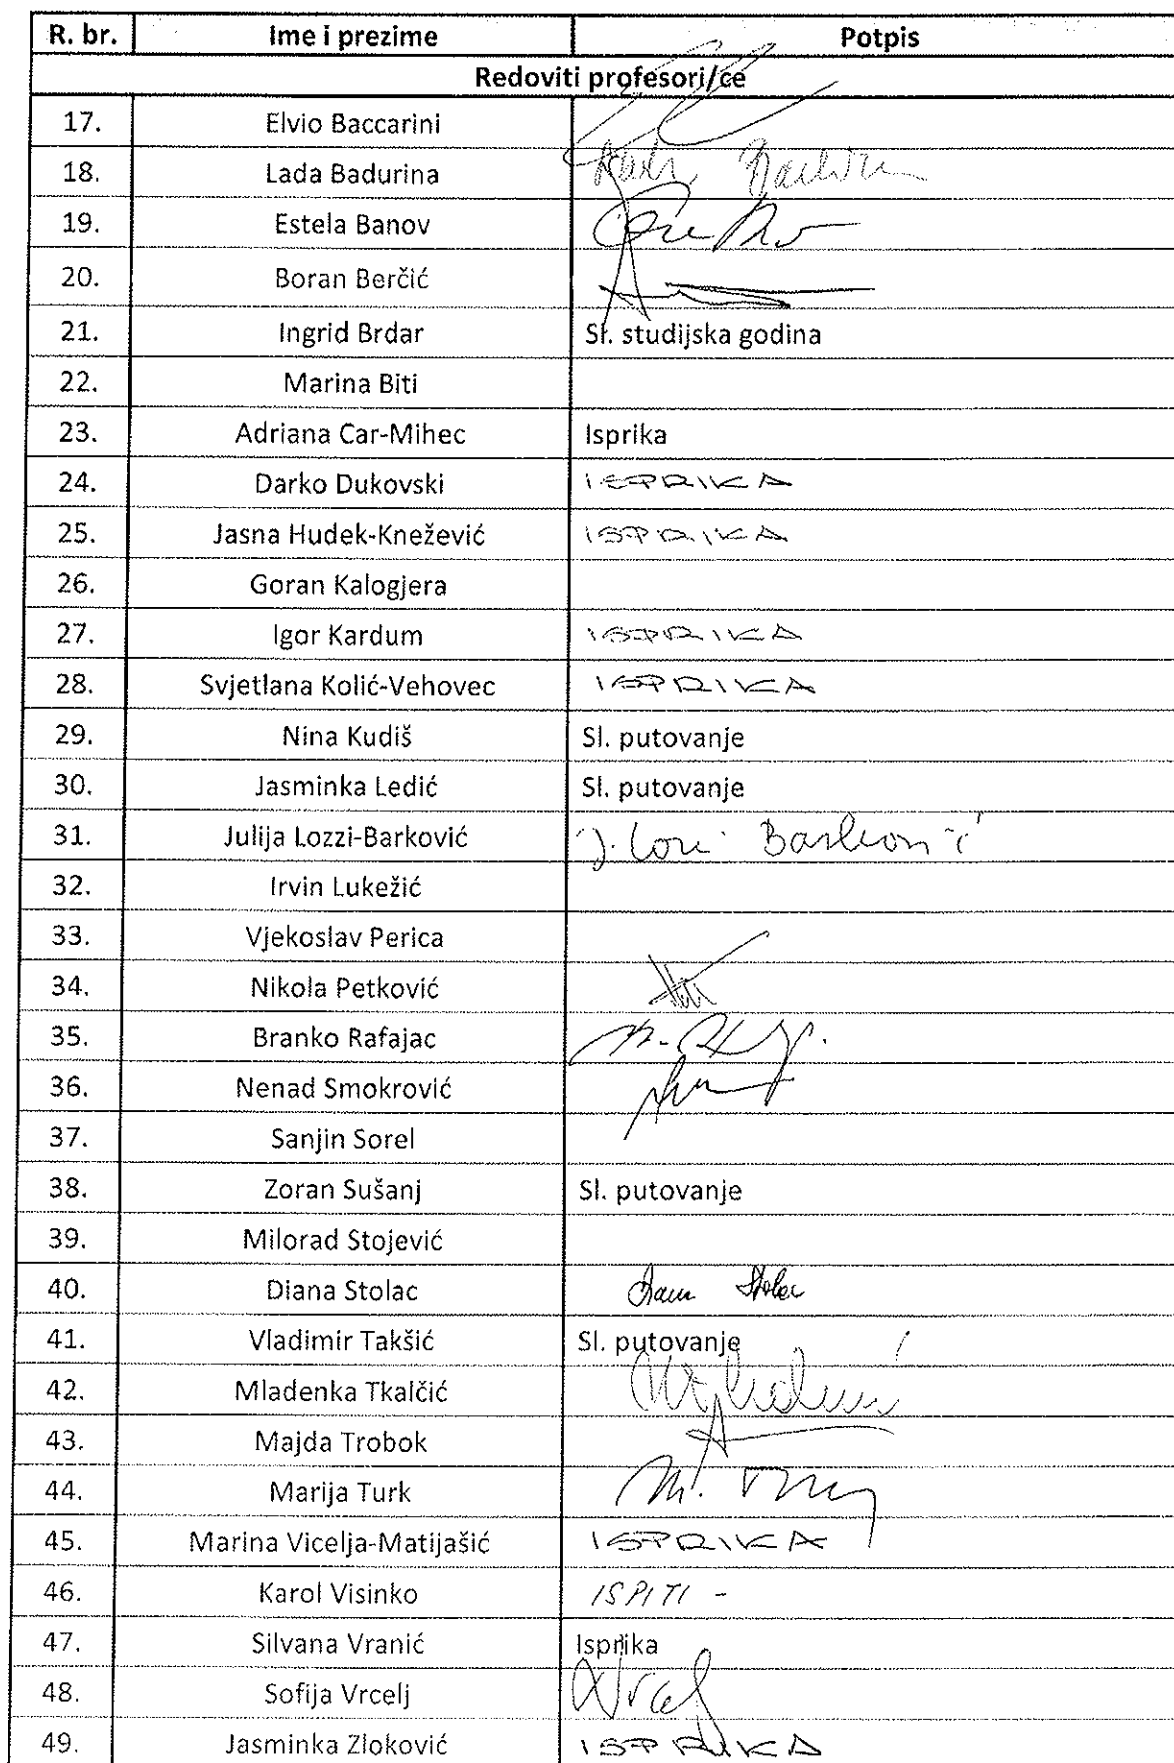 R. br. Ime i prezime Potpis
Redoviti profesori/ce
17. Elvio Baccarini
18. Lada Badurina
19. Estela Banov
20. Boran Berčić
21. Ingrid Brdar Sl. studijska godina
22. Marina Biti
23. Adriana Car-Mihec Isprika
24. Darko Dukovski ISPRIKA
25. Jasna Hudek-Knežević ISPRIKA
26. Goran Kalogjera
27. Igor Kardum ISPRIKA
28. Svjetlana Kolić-Vehovec ISPRIKA
29. Nina Kudiš Sl. putovanje
30. Jasminka Ledić Sl. putovanje
31. Julija Lozzi-Barković J. Lozzi Barković
32. Irvin Lukežić
33. Vjekoslav Perica
34. Nikola Petković
35. Branko Rafajac
36. Nenad Smokrović
37. Sanjin Sorel
38. Zoran Sušanj Sl. putovanje
39. Milorad Stojević
40. Diana Stolac Diana Stolac
41. Vladimir Takšić Sl. putovanje
42. Mladenka Tkalčić
43. Majda Trobok
44. Marija Turk M. Turk
45. Marina Vicelja-Matijašić ISPRIKA
46. Karol Visinko ISPITI -
47. Silvana Vranić Isprika
48. Sofija Vrcelj Vrcelj
49. Jasminka Zloković ISPRIKA